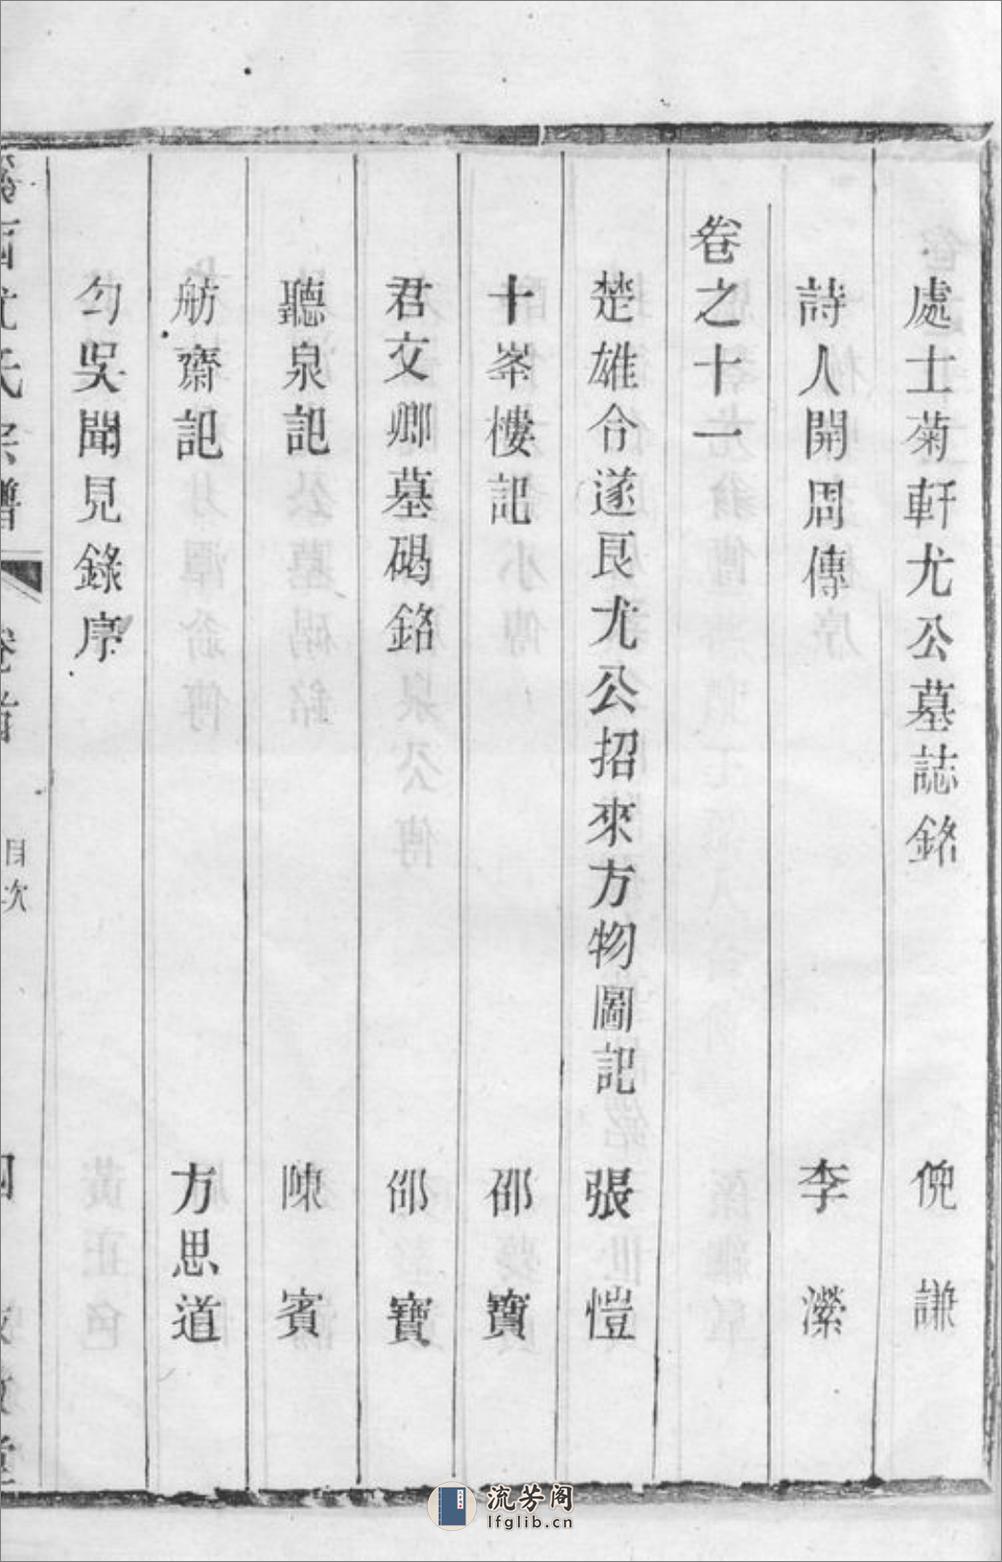 處士菊軒尤公墓誌銘 倪謙
詩人開周傳 李瀠
卷之十一
楚雄令遂良尤公招來方物圖記 張愷
十峯樓記 邵寶
君文卿墓碣銘 邵寶
聽泉記 陳賓
舫齋記 方思道
勾吳聞見錄序
目次
流芳阁
lfglib.cn